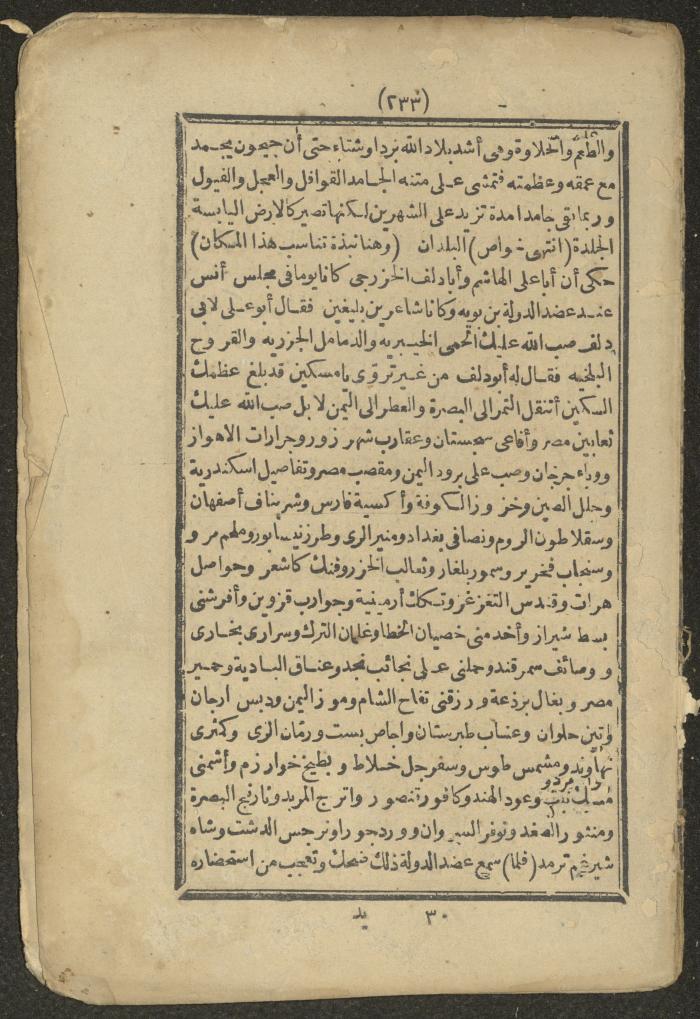 (٢٣٣)
والطعم والحلاوة وهى أشد بلاد الله بردا وشتاء حتى أن جيحون يجمد
مع عمقه وعظمته فتمشى على متنه الجامد القوافل والعجل والفيول
وربما بقى جامدا مدة تزيد على الشهرين لكنها تصير كالارض اليابسة
الجلدة (انتهى خواص) البلدان (وهنا نبذة تناسب هذا المكان)
حكى أن أبا على الهاشم وأبا دلف الخزرجى كانا يوما فى مجلس أنس
عند عضد الدولة بن بويه وكانا شاعرين بليغين فقال أبو على لابى
دلف صب الله عليك الحمى الخيبريه والدمامل الجزريه والقروح
البلخيه فقال له أبو دلف من غير تروى يا مسكين قد بلغ عظمك
السكين أتنقل التمر الى البصرة والعطر الى اليمن لا بل صب الله عليك
ثعابين مصر وأفاعى سجستان وعقارب شهر زور وجرارات الاهواز
ووباء جرجان وصب على برود اليمن ومقصب مصر وتفاصيل اسكندرية
وحلل الصين وخزوز الكوفة وأكسية فارس وشربناف أصفهان
وسقلاطون الروم ونصافى بغداد ومنير الرى وطرز نيسابور وملحم مرو
وسنجاب خرخيز وسمور بلغار وثعالب الخزر وفنك كاشغر وحواصل
هرات وقندس التغزغز وتكك أرمينية وجوارب قزوين وأفرشنى
بسط شيراز وأخدمنى خصيان الخطا وغلمان الترك وسرارى بخارى
و وصائف سمرقند وحملنى على نجائب نجد وعناق البادية وحمير
مصر وبغال برذعة ورزقنى تفاح الشام وموز اليمن ودبس ارجان
وتين حلوان وعناب طبرستان واجاص بست ورمان الرى وكمثرى
نهاوند ومشمس طوس وسفرجل خلاط وبطيخ خوارزم وأشمنى
مسك تبت وعود الهند وكافور قنصور واترج المربد ونارنج البصرة
ومنثور الصغد ونوفر السيروان وورد جور ونرجس الدشت وشاه
شيرغم ترمد (فلما) سمع عضد الدولة ذلك ضحك وتعجب من استحضاره
٣٠ يد